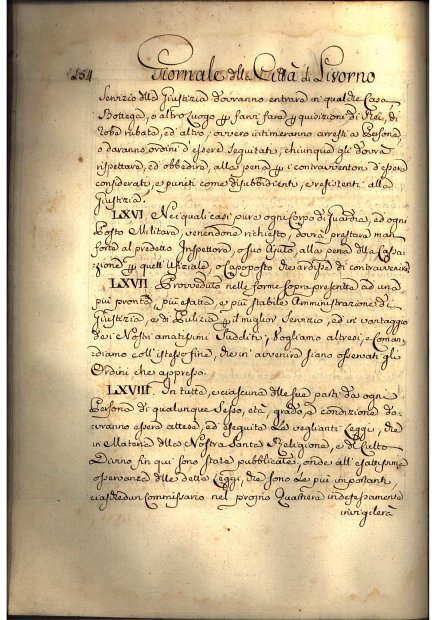 154 Giornale della Città di Livorno
Servizio della Giustizia dovranno entrare in qualche Casa,
Bottega, o altro Luogo per farvi fare perquisizioni di Rei, di
robe rubate, ed altro, ovvero intimeranno arresti a Persone,
o daranno ordini d'essere seguitati, chiunque gli dovrà
rispettare, ed obbedire, alla pena per i contravventori d'essere
considerati, e puniti come disubbidienti, e resistenti alla
Giustizia.
LXVI. Nei quali casi pure ogni Corpo di Guardia, ed ogni
Posto Militare, venendone richiesto, dovrà prestare man
forte al predetto Inspettore, o suo Ajuto, alla pena della Cassa-
zione per quell'Ufiziale, o Capoposto che ardisse di contravvenire
LXVII Provveduto nelle forme sopra prescritte ad una
più pronta, più esatta, e più stabile Amministrazione di
Giustizia, e di Pulizia per il miglior Servizio, ed in vantaggio
dei Nostri amatissimi Sudditi; Vogliamo altresì, e Coman-
diamo coll'istesso fine, che in avvenire siano osservati gli
Ordini che appresso.
LXVIII. In tutte, e ciascuna delle sue parti da ogni
Persona di qualunque Sesso, età, grado, e condizione do-
vranno essere attese, ed eseguite le veglianti Leggi, che
in Materia della Nostra Santa Religione, e del Culto
Divino fin qui sono state pubblicate, onde all'esattissima
osservanza delle dette Leggi, che sono le più importanti,
ciaschedun Commissario nel proprio Quartiere indefessamente
invigilerà